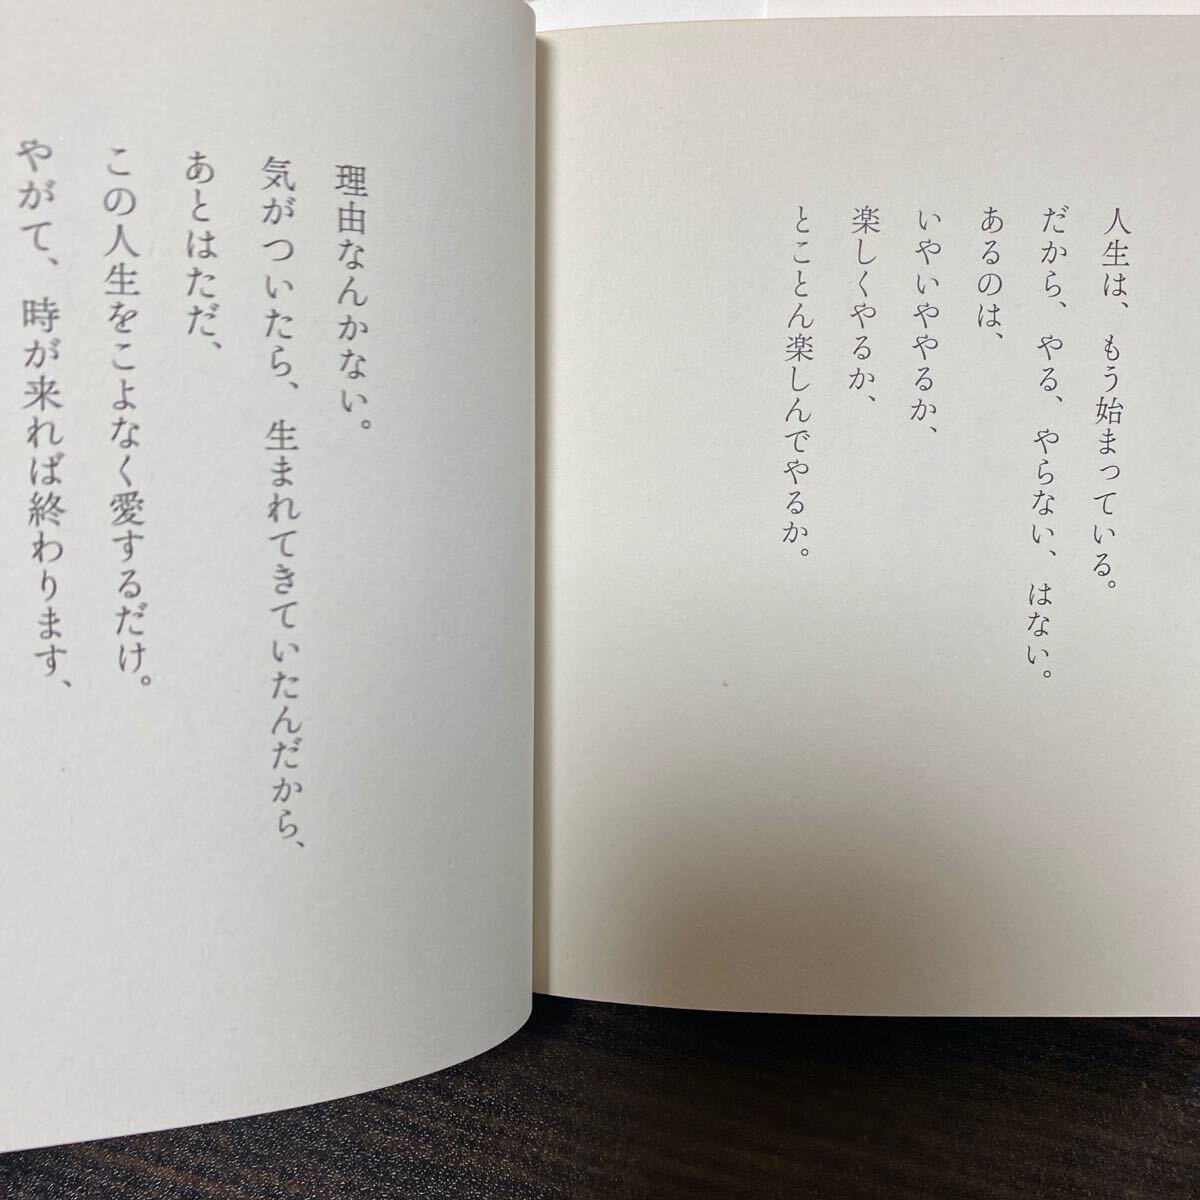 人生は、もう始まっている。
だから、やる、やらない、はない。
あるのは、
いやいややるか、
楽しくやるか、
とことん楽しんでやるか。
理由なんかない。
気がついたら、生まれてきていたんだから、
あとはただ、
この人生をこよなく愛するだけ。
やがて、時が来れば終わります、